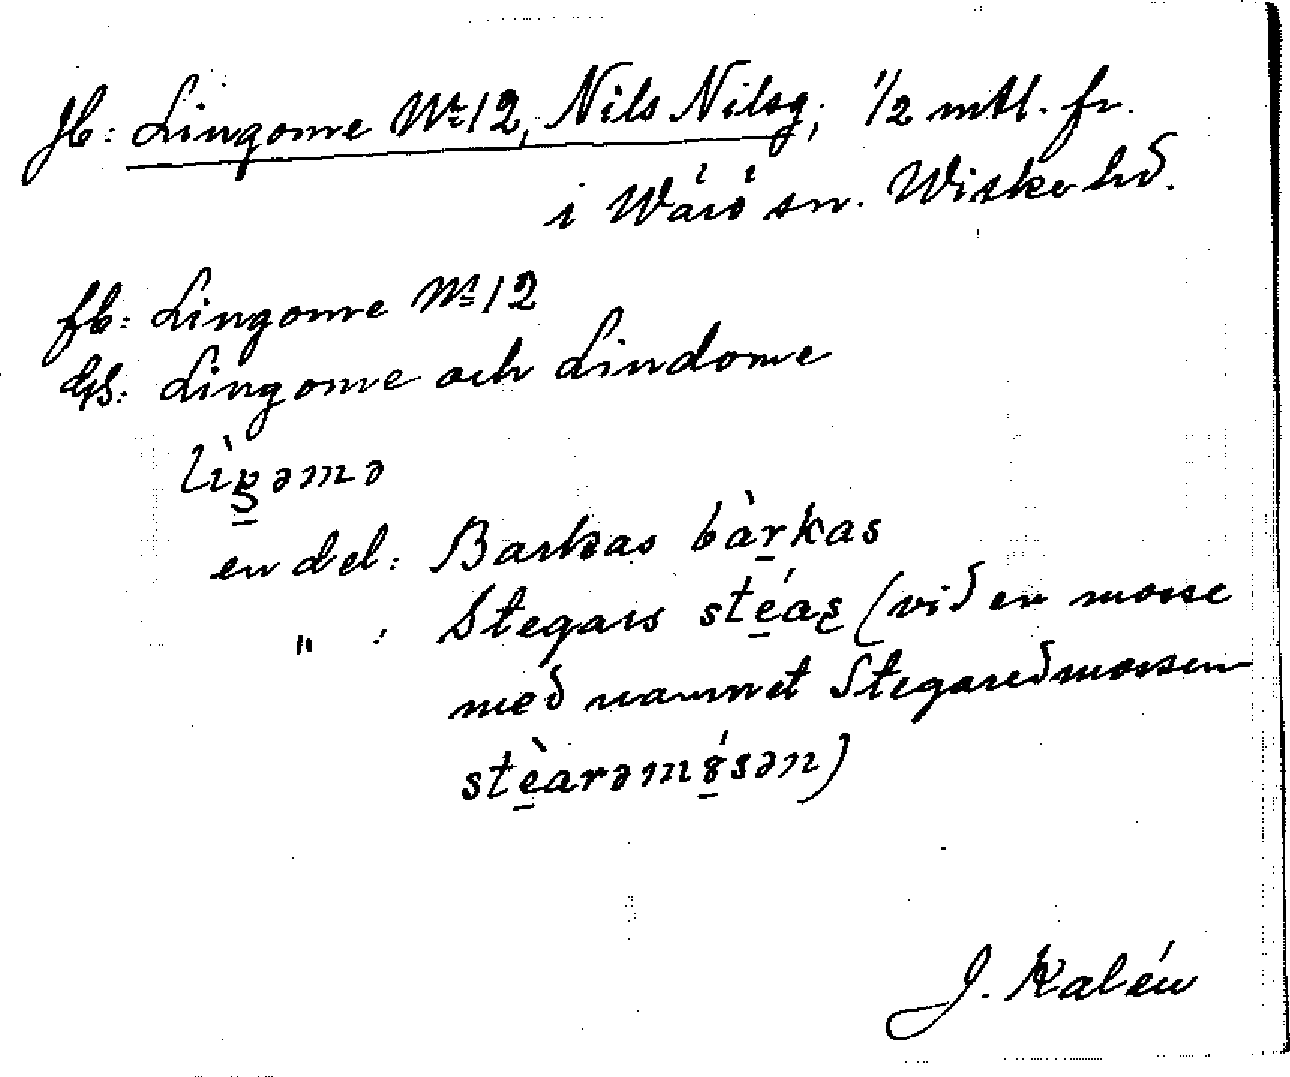 Jb: Lingome No 12, Nils Nilsg; 1/2 mtl. fr.
i Wärö sn. Wiske hd.
fb: Lingome No 12
Gs: Lingome och Lindome
lìŋəmə
en del: Barkas bàrkas
" : Stegars stéaʂ (vid en mosse
med namnet Stegaredmossen
stèarəmósən)
J. Kalén